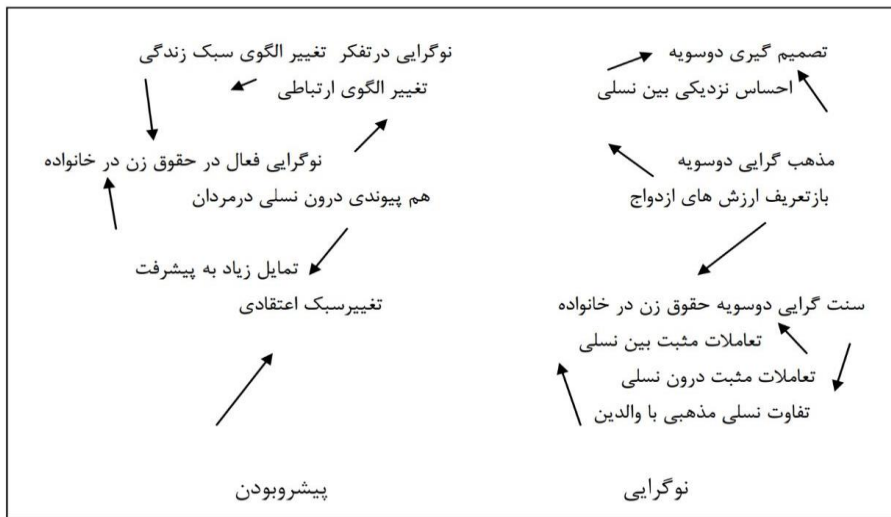 تصمیم گیری دوسویه
احساس نزدیکی بین نسلی
مذهب گرایی دوسویه
بازتعریف ارزش های ازدواج
سنت گرایی دوسویه حقوق زن در خانواده
تعاملات مثبت بین نسلی
تعاملات مثبت درون نسلی
تفاوت نسلی مذهبی با والدین
نوگرایی
نوگرایی درتفکر تغییر الگوی سبک زندگی
تغییر الگوی ارتباطی
نوگرایی فعال در حقوق زن در خانواده
هم پیوندی درون نسلی درمردان
تمایل زیاد به پیشرفت
تغییرسبک اعتقادی
پیشروبودن